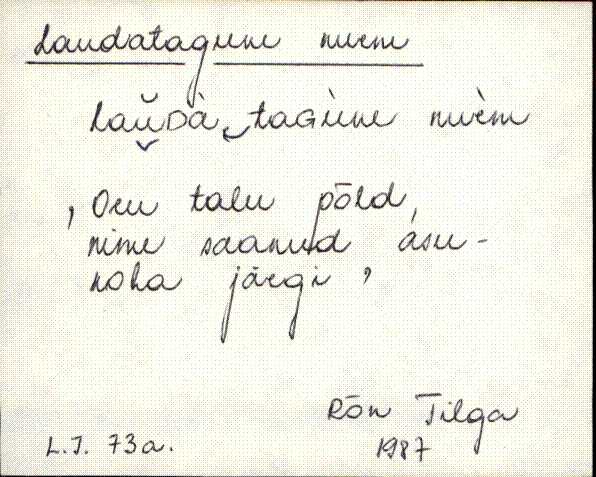 Laudatagune nurm
laŭ̬Dà ̮taGùne nurm
‚ Oru talu põld,
nime saanud asu-
koha järgi ’
Rõn Tilga
L.J. 73a. 1987